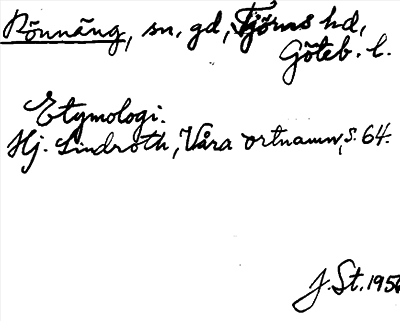 Rönnäng, sn, gd, Tjörns hd,
Göteb. l.
Etymologi.
Hj. Lindroth, Våra ortnamn, s. 64.
J. St. 1956